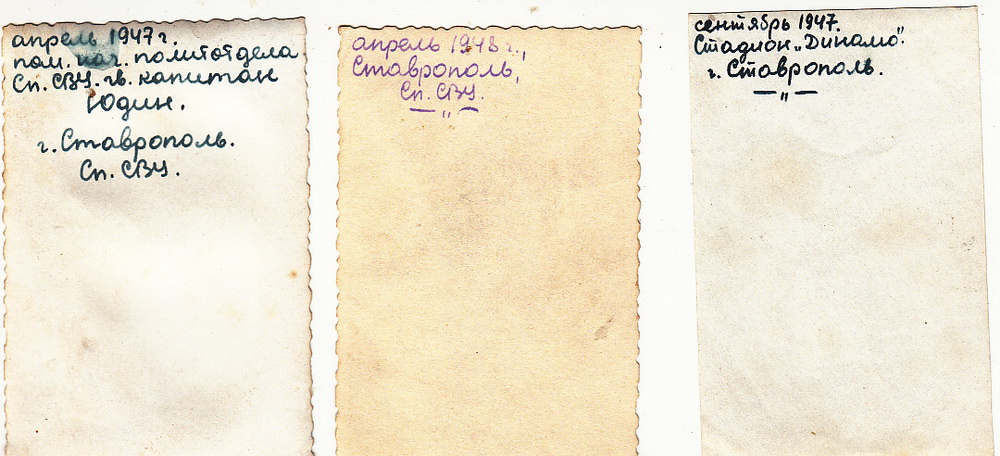 апрель 1947 г.
пом. нач. политотдела
Сп. СВУ. гв. капитан
Юдин.
г. Ставрополь.
Сп. СВУ.
апрель 1948 г.,
Ставрополь,
Сп. СВУ.
— „ —
сентябрь 1947.
Стадион „Динамо".
г. Ставрополь.
— „ —